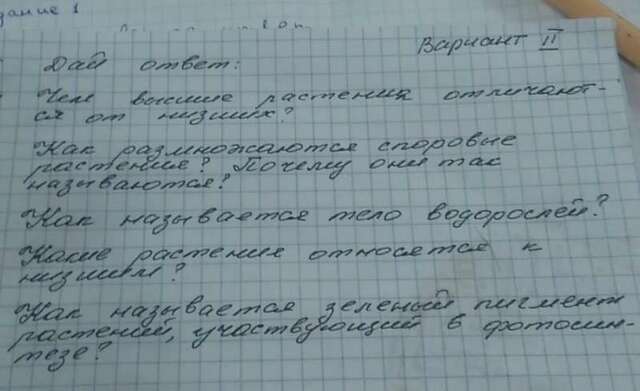 дание 1
Вариант II
Дай ответ:
Чем высшие растения отличают-
ся от низших?
Как размножаются споровые
растения? Почему они так
называются?
Как называется тело водорослей?
Какие растения относятся к
низшим?
Как называется зеленый пигмент
растений, участвующий в фотосин-
тезе?